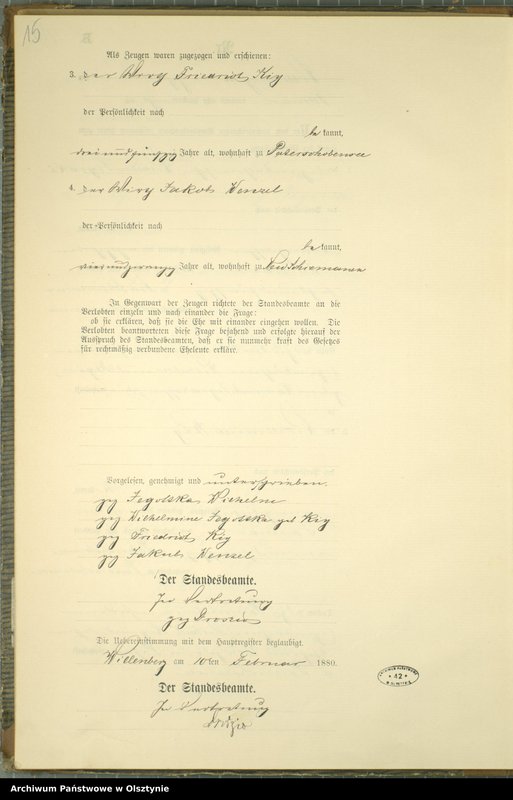 15
Als Zeugen waren zugezogen und erschienen:
3. der Wirth Friedrich Kig
der Persönlichkeit nach
be kannt,
drei und fünfzig Jahre alt, wohnhaft zu
4. der Wirth Jakob Wenzel
der Persönlichkeit nach
be kannt,
vierundzwanzig Jahre alt, wohnhaft zu Neu Schiemanen
In Gegenwart der Zeugen richtete der Standesbeamte an die
Verlobten einzeln und nach einander die Frage:
ob sie erklären, daß sie die Ehe mit einander eingehen wollen. Die
Verlobten beantworteten diese Frage bejahend und erfolgte hierauf der
Ausspruch des Standesbeamten, daß er sie nunmehr kraft des Gesetzes
für rechtmäßig verbundene Eheleute erkläre.
Vorgelesen, genehmigt und unterschrieben.
gez Jegotzka Wilhelm
gez Wilhelmine Jegotzka geb Kig
gez Friedrich Kig
gez Jakob Wenzel
Der Standesbeamte.
In Vertretung
gez
Die Uebereinstimmung mit dem Hauptregister beglaubigt.
Willenberg am 10ten Februar 1880.
Der Standesbeamte.
In Vertretung
42
Archiwum Państwowe w Olsztynie